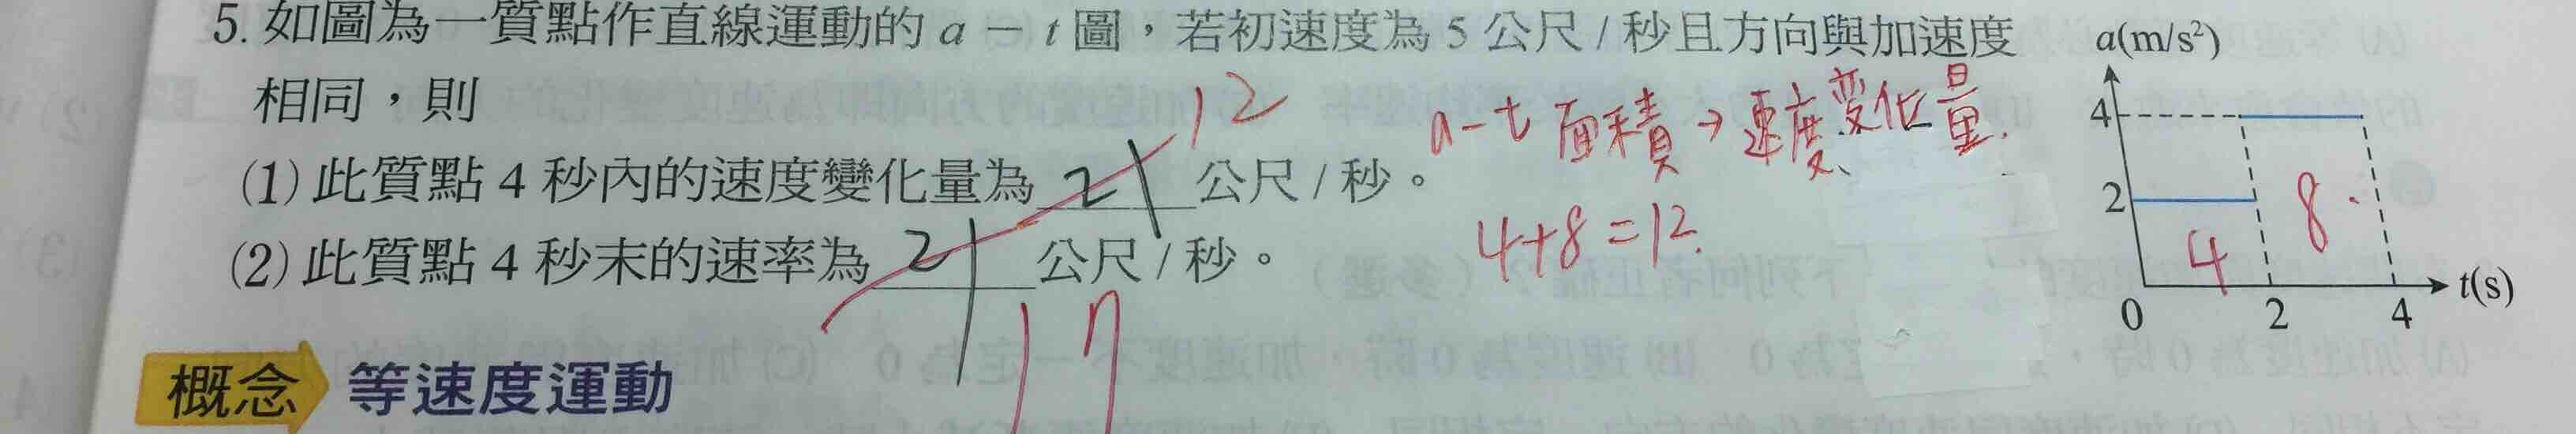 5. 如圖為一質點作直線運動的 a － t 圖，若初速度為 5 公尺 / 秒且方向與加速度
相同，則
(1) 此質點 4 秒內的速度變化量為 21 公尺 / 秒。
12
(2) 此質點 4 秒末的速率為 21 公尺 / 秒。
17
a-t 面積→速度変化量.
4+8=12.
a(m/s²)
4
2
4
8.
0
2
4
t(s)
概念 等速度運動